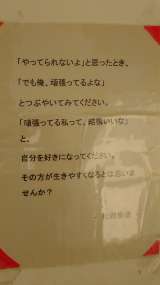 「やってられないよ」と思ったとき、
「でも俺、頑張ってるよな」
とつぶやいてみてください。
「頑張ってる私って、結構いいな」
と、
自分を好きになってください。
その方が生きやすくなるとは思いま
せんか？